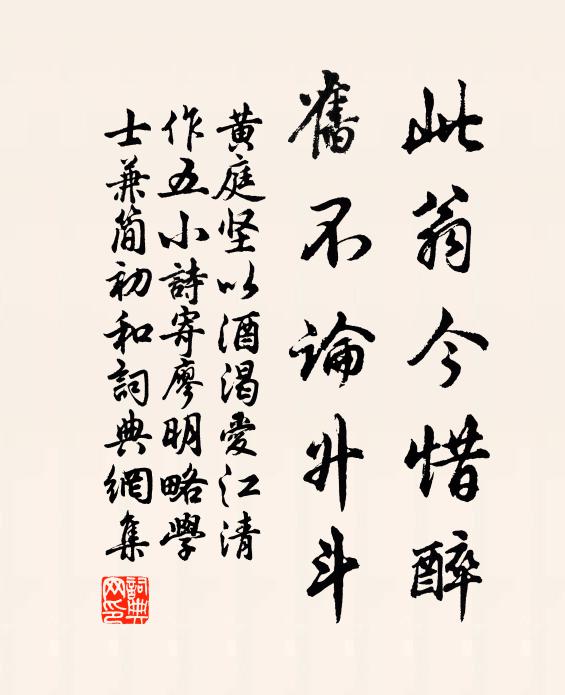 此翁今惜醉
舊不論升斗
黄庭坚以酒渴愛江清
作五小詩寄廖明略學
士兼简初和詞典網集
詞典网印